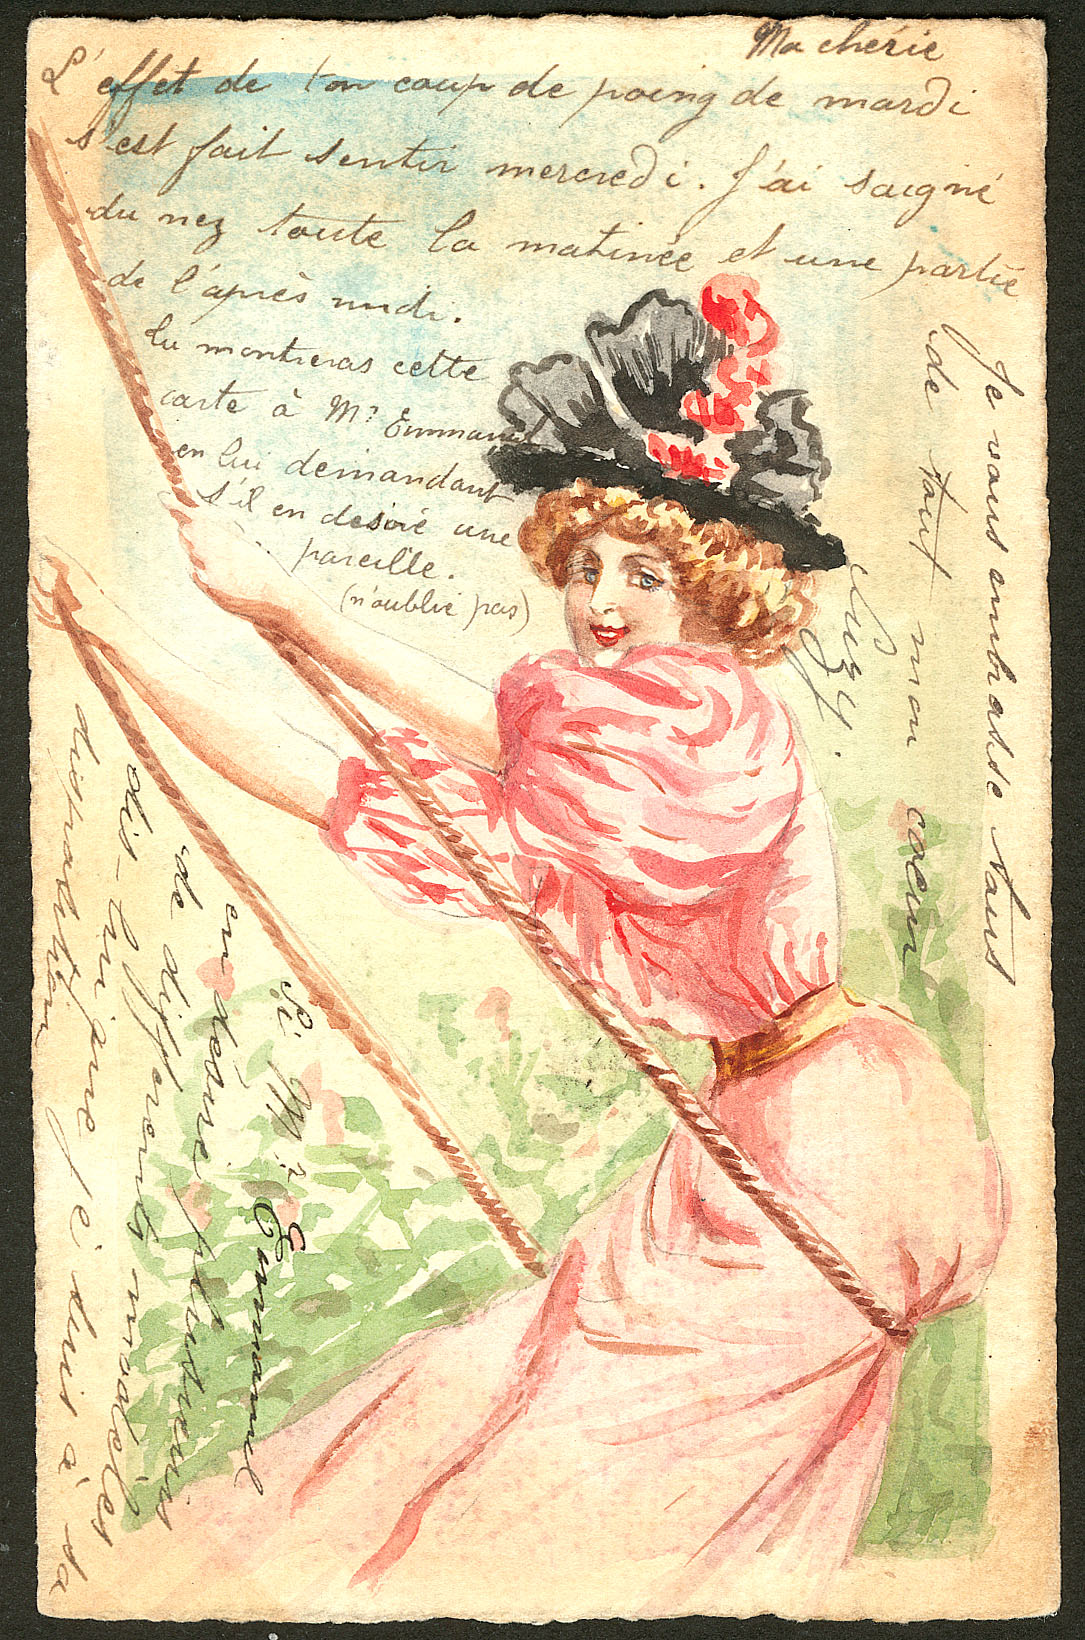 Ma chérie
L'effet de ton coup de poing de mardi
s'est fait sentir mercredi. J'ai saigné
du nez toute la matinée et une partie
de l'après midi.
Tu montreras cette
carte à Mr Emmanuel
en lui demandant
s'il en désire une
pareille.
(n'oublie pas)
Si Mr Emmanuel
en désire plusieurs
de différents modèles
dis-lui que je suis à sa
disposition
Je vous embrasse tous
de tout mon cœur
Suzy.